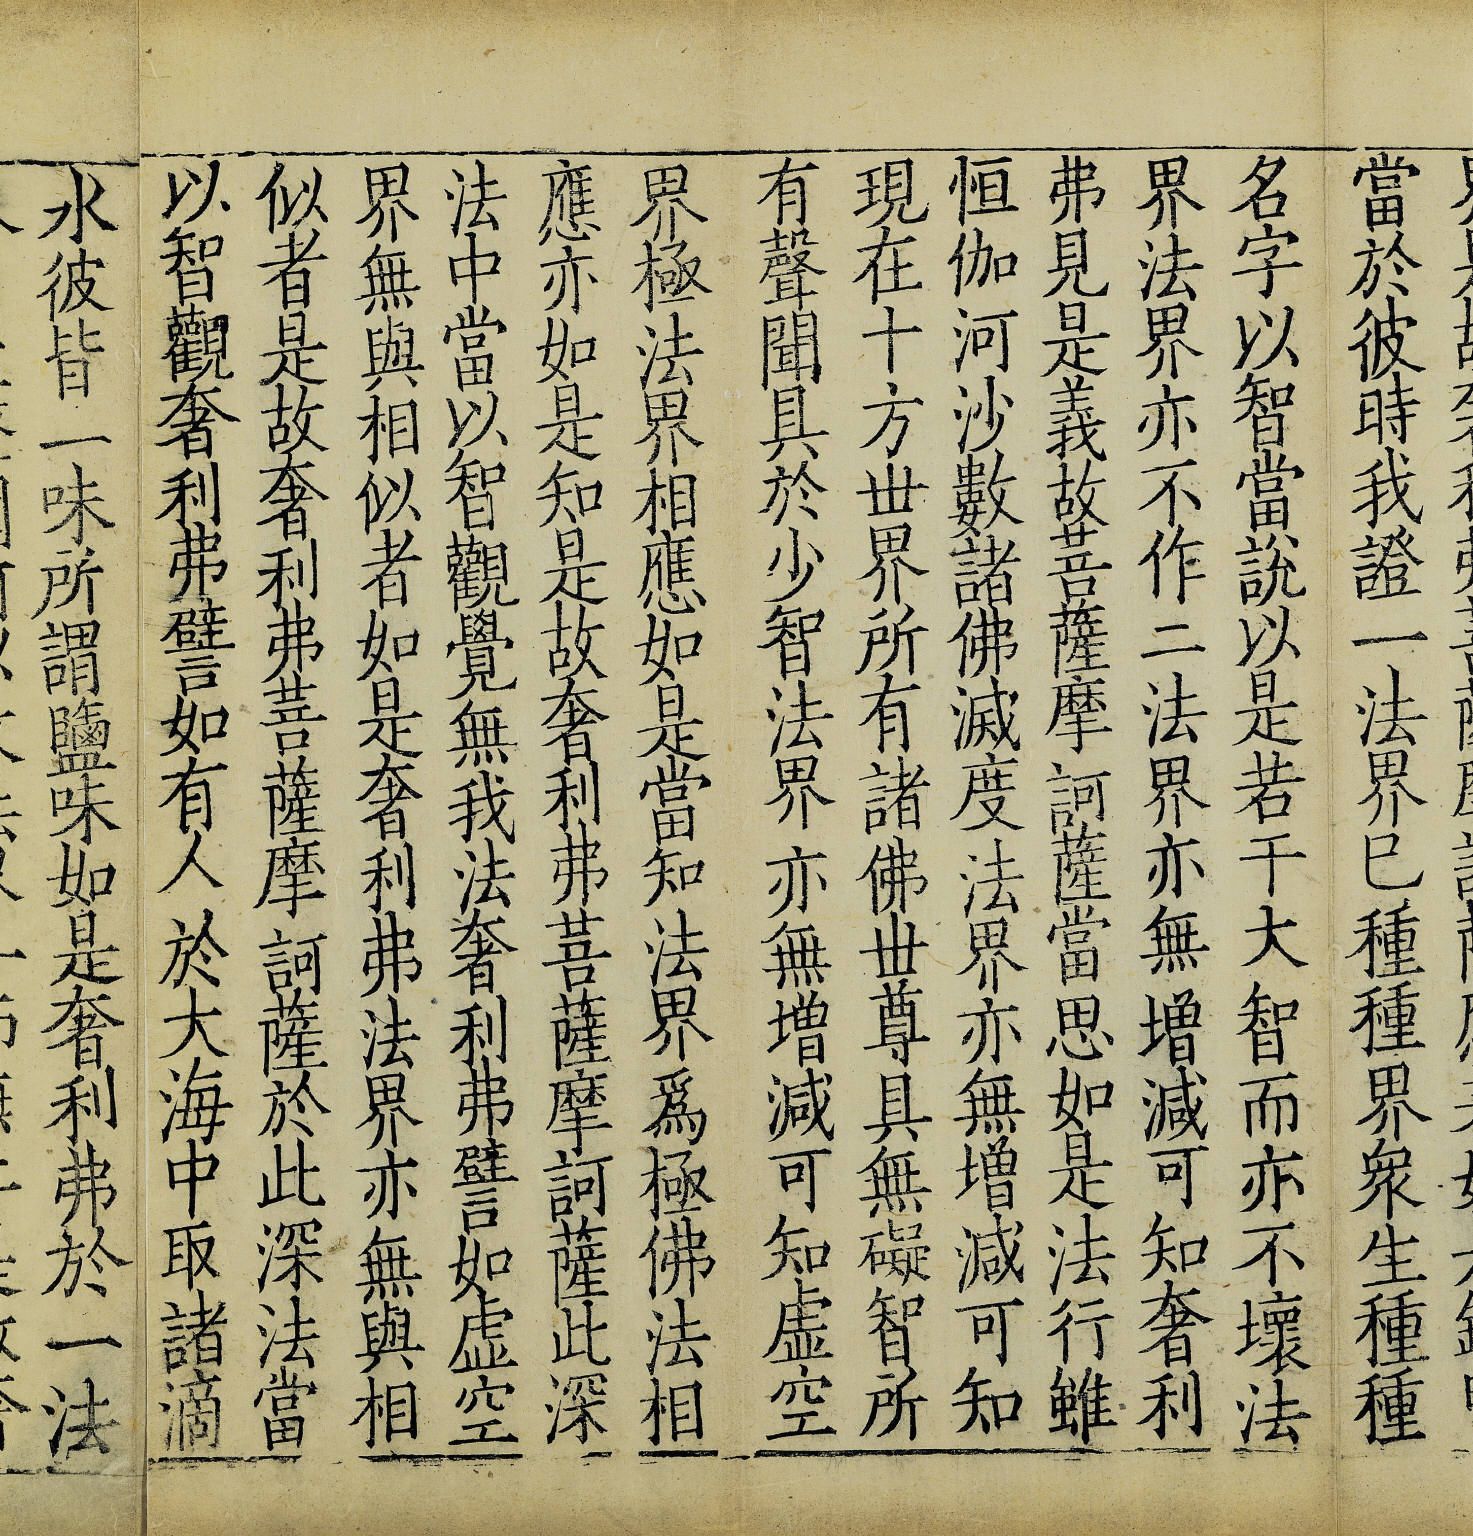 當於彼時我證一法界已種種界衆生種種
名字以智當說以是若干大智而亦不壞法
界法界亦不作二法界亦無増減可知奢利
弗見是義故菩薩摩訶薩當思如是法行雖
恒伽河沙數諸佛滅度法界亦無増減可知
現在十方世界所有諸佛世尊具無礙智所
有聲聞具於少智法界亦無増減可知虚空
界極法界相應如是當知法界爲極佛法相
應亦如是知是故奢利弗菩薩摩訶薩此深
法中當以智觀覺無我法奢利弗譬如虚空
界無與相似者如是奢利弗法界亦無與相
似者是故奢利弗菩薩摩訶薩於此深法當
以智觀奢利弗譬如有人於大海中取諸滴
水彼皆一味所謂鹽味如是奢利弗於一法